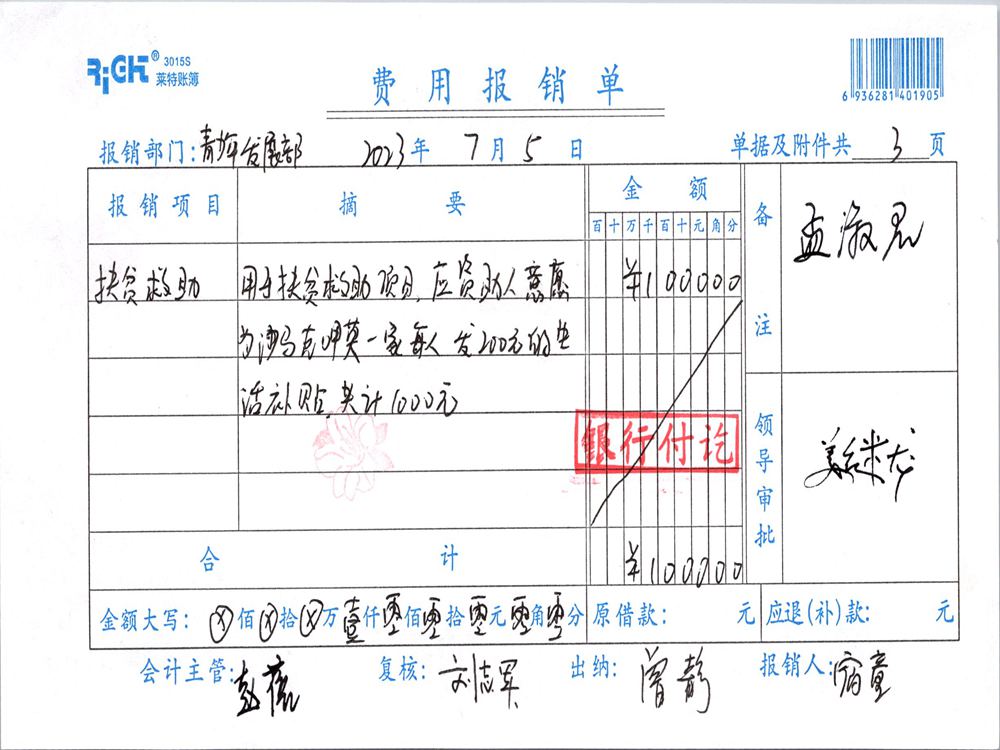 RiGHT® 3015S
莱特账簿
费用报销单
6 936281 401905
报销部门:青年发展部 2023年 7月 5日 单据及附件共 3 页
报销项目 摘要 金额 备注
百十万千百十元角分
扶贫救助 用于扶贫救助项目,应资助人意愿 ¥100000
为沙马克呷莫一家每人发200元的生
活补贴,共计1000元
银行付讫
领导审批
合计 ¥100000
金额大写: ⓧ佰ⓧ拾ⓧ万壹仟零佰零拾零元零角零分 原借款: 元 应退(补)款: 元
会计主管: 复核:刘志军 出纳:曾静 报销人:宿童